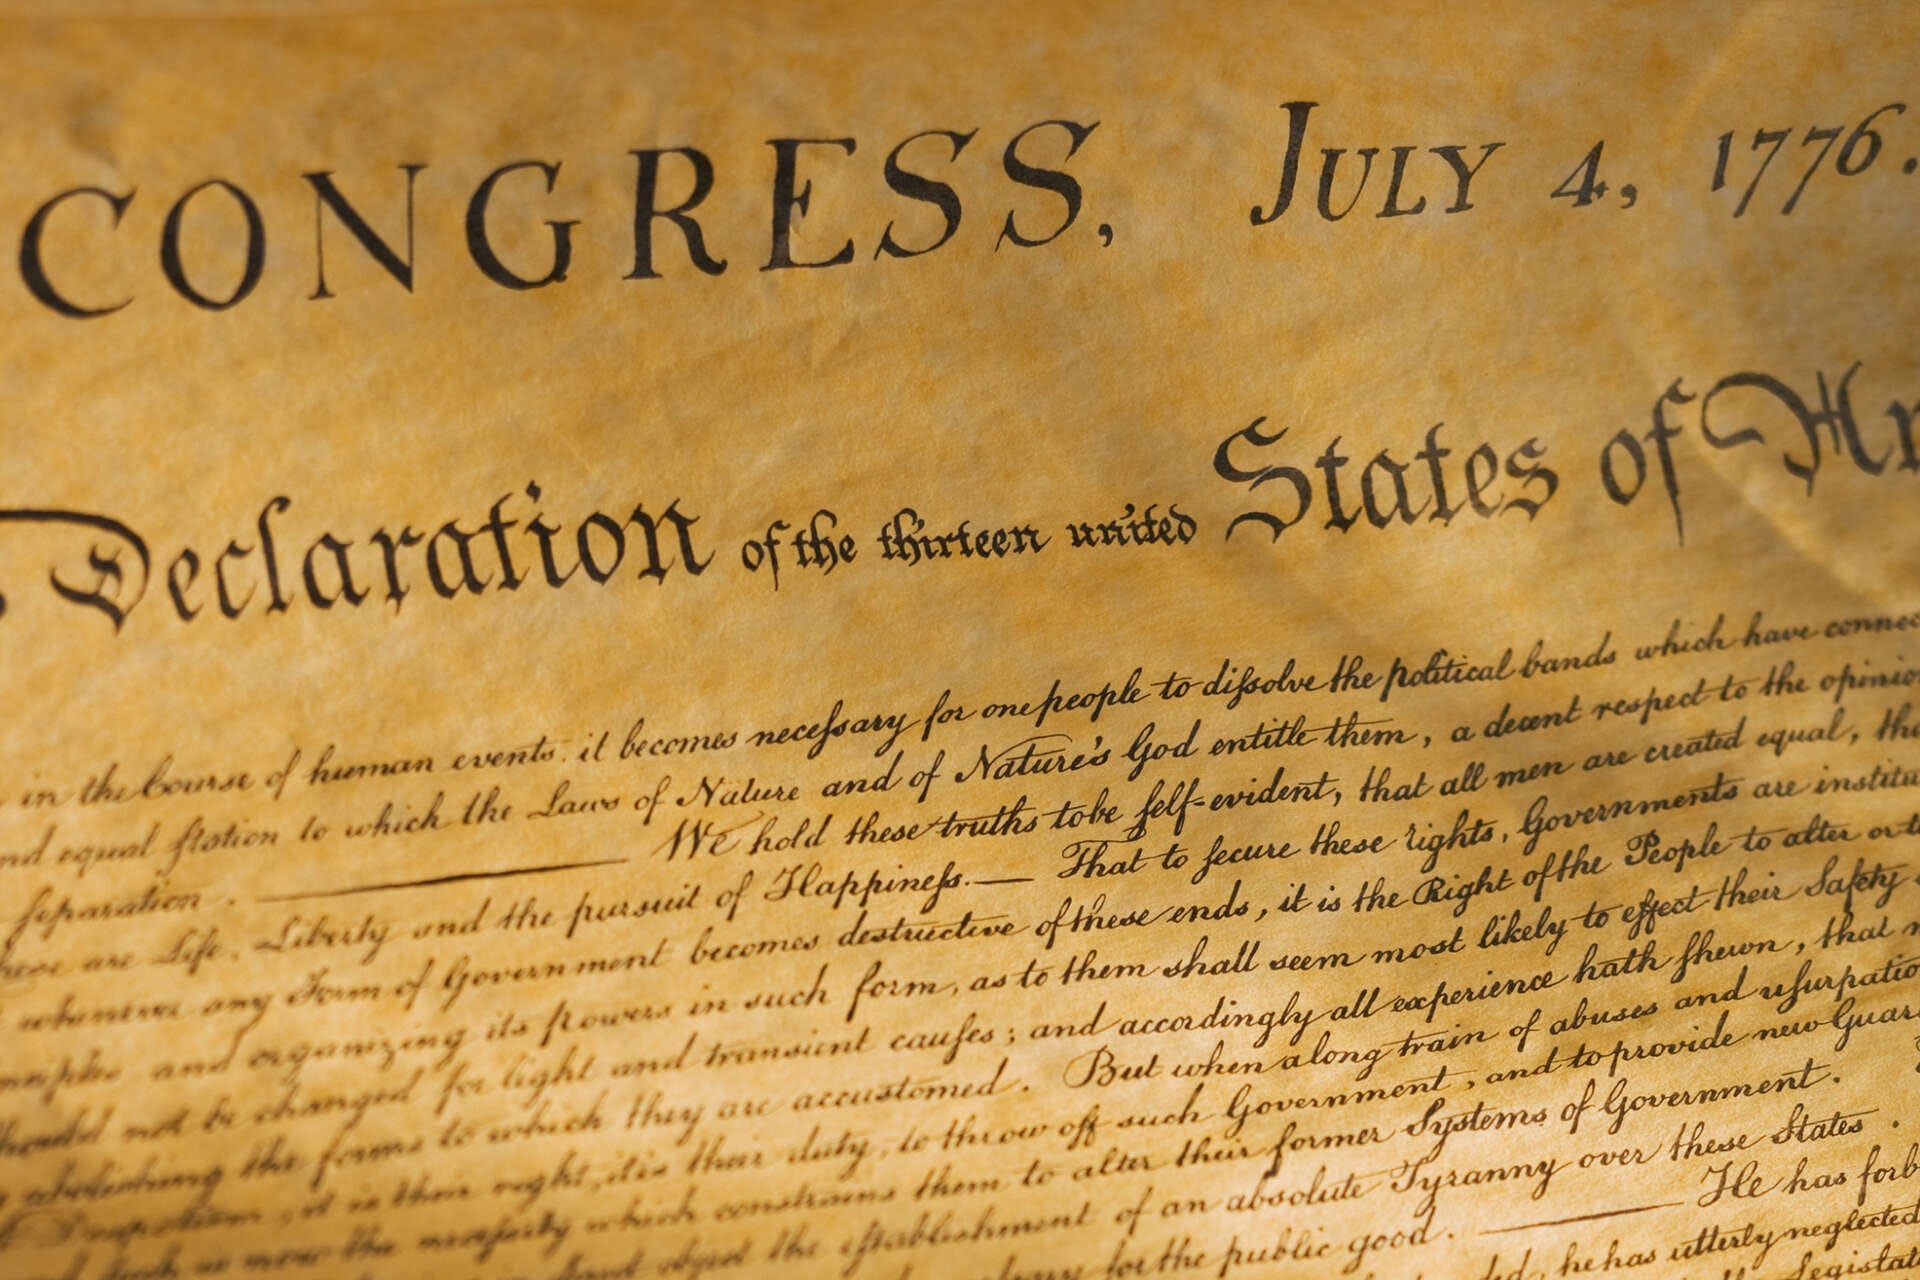 CONGRESS, JULY 4, 1776.
Declaration of the thirteen united States of Am
in the Course of human events, it becomes neceſsary for one people to diſsolve the political bands which have connec
nd equal ſtation to which the Laws of Nature and of Nature's God entitle them, a decent respect to the opinio
ſeparation. We hold these truths to be ſelf-evident, that all men are created equal, tha
are Life, Liberty and the pursuit of Happineſs.— That to ſecure these rights, Governments are institu
whenever any Form of Government becomes destructive of these ends, it is the Right of the People to alter or to
and organizing its powers in such form, as to them shall seem most likely to effect their Safety
not be changed for light and transient cauſes; and accordingly all experience hath ſhewn, that
abolishing the forms to which they are accustomed. But when a long train of abuses and uſurpatio
Despotism, it is their right, it is their duty, to throw off such Government, and to provide new Guar
such is now the neceſsity which constrains them to alter their former Systems of Government.
object the eſtablishment of an absolute Tyranny over these States.
for the public good. He has forb
he has utterly neglected
Legislat